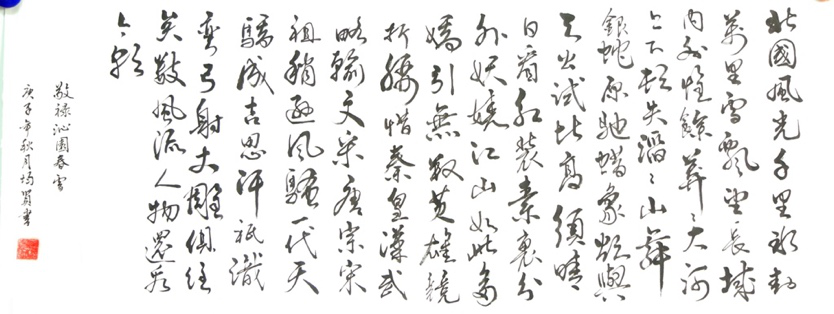 北國風光千里冰封
萬里雪飄望長城
內外惟餘莽〻大河
上下頓失滔〻山舞
銀蛇原馳蠟象欲與
天公試比高須晴
日看紅裝素裹分
外妖嬈江山如此多
嬌引無數英雄競
折腰惜秦皇漢武
略輸文采唐宗宋
祖稍遜風騷一代天
驕成吉思汗祗識
彎弓射大雕俱往
矣數風流人物還看
今朝
敬録沁園春雪
庚子年秋月楊書